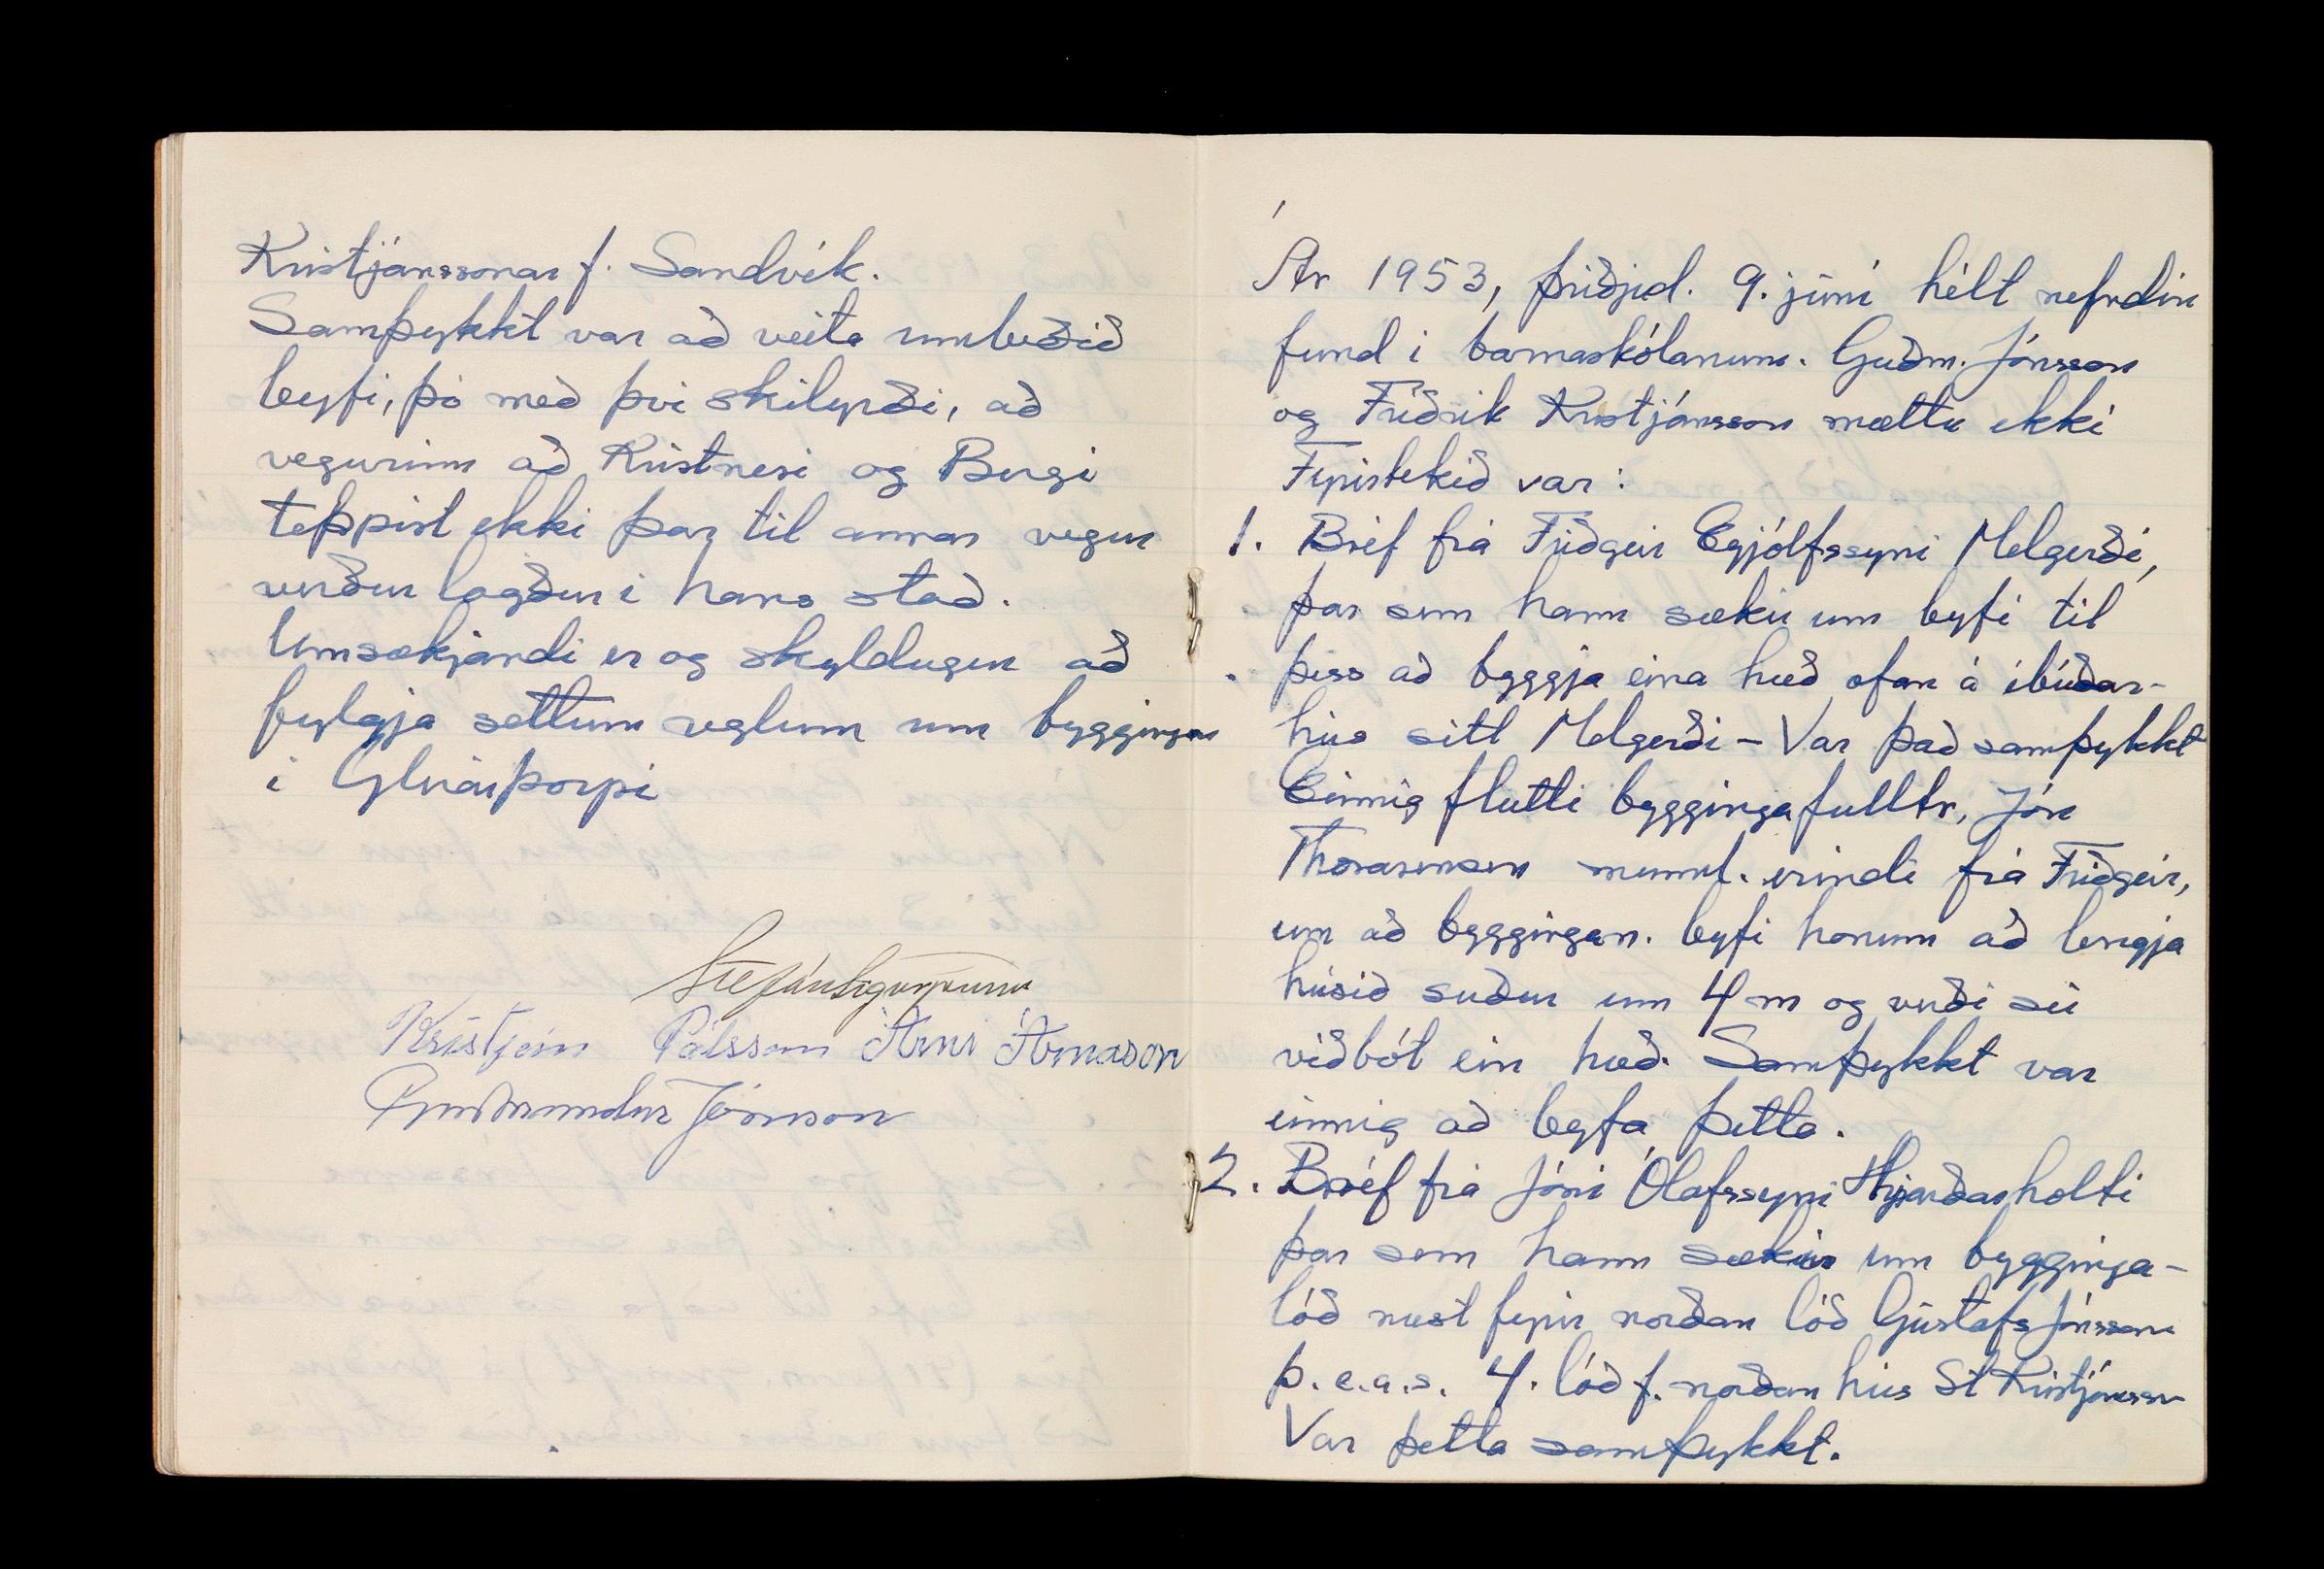 Kristjánssonar f. Sandvík.
Samþykkt var að veita umbeðið
leyfi, þó með því skilyrði, að
vegurinn að Kristnesi og Bergi
teppist ekki þar til annar vegur
verður lagður i hans stað.
Umsækjandi er og skyldugur að
fylgja settum reglum um byggingar
i Glerárþorpi
Kristján Pálsson Árni Árnason
Guðmundur Jónsson
Ár 1953, þriðjud. 9. júní hélt nefndin
fund i barnaskólanum. Guðm. Jónsson
og Friðrik Kristjánsson mættu ekki
Fyrirtekið var:
1. Bréf frá Friðgeir Eyjólfssyni Melgerði,
þar sem hann sækir um leyfi til
þess að byggja eina hæð ofan á íbúðar-
hús sitt Melgerði - Var það samþykkt
Einnig flutti byggingafulltr, Jón
Thorarensen munnl. erindi frá Friðgeir,
um að byggingan. leyfi honum að lengja
húsið suður um 4 m og verði sú
viðbót ein hæð. Samþykkt var
einnig að leyfa þetta.
2. Bréf frá Jóni Ólafssyni Hjarðarholti
þar sem hann sækir um bygginga-
lóð næst fyrir norðan lóð Gústafs Jónssonar
þ.e.a.s. 4. lóð f. norðan hús St Kristjánssonar
Var þetta samþykkt.